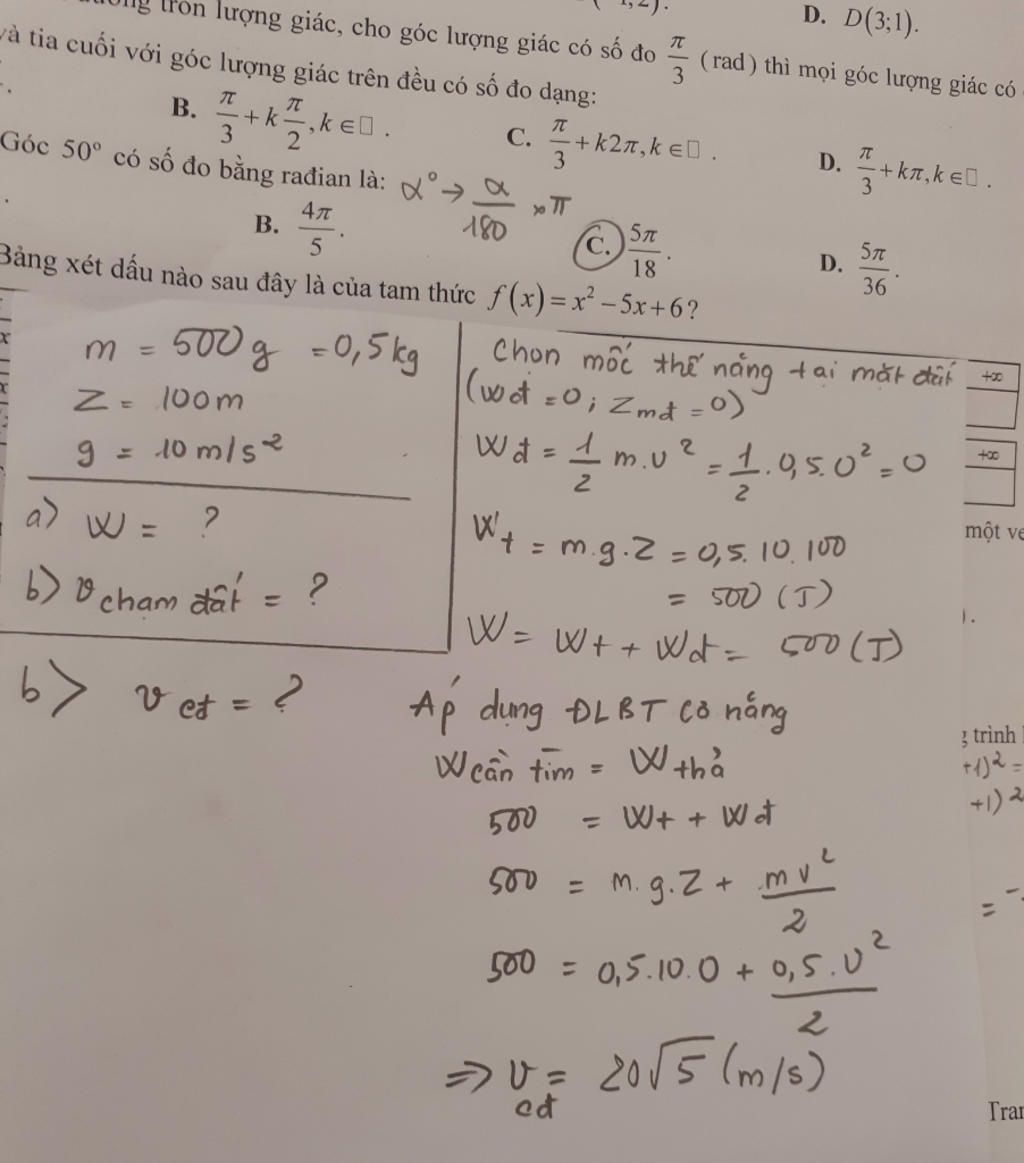 D. D(3;1).
tròn lượng giác, cho góc lượng giác có số đo π/3 (rad) thì mọi góc lượng giác có
và tia cuối với góc lượng giác trên đều có số đo dạng:
B. π/3 + k π/2, k ∈ □ .
C. π/3 + k2π, k ∈ □ .
D. π/3 + kπ, k ∈ □ .
Góc 50° có số đo bằng rađian là: α° → α/180 × π
B. 4π/5 .
C. 5π/18 .
D. 5π/36 .
Bảng xét dấu nào sau đây là của tam thức f(x) = x² − 5x + 6?
m = 500g = 0,5kg
Z = 100m
g = 10 m/s⁻²
a) W = ?
b) v chạm đất = ?
Chọn mốc thế năng tại mặt đất
(Wđ = 0; Zmđ = 0)
Wđ = 1/2 m.v² = 1/2 . 0,5.0² = 0
Wt = m.g.Z = 0,5.10.100
= 500 (J)
W = Wt + Wđ = 500 (J)
+∞
+∞
một
b> v cđ = ?
Áp dụng ĐLBT cơ năng
W cần tìm = W thả
500 = Wt + Wđ
500 = m.g.Z + mv²/2
500 = 0,5.10.0 + 0,5.v²/2
=> v cđ = 20√5 (m/s)
trình
+1)² =
+1)²
=